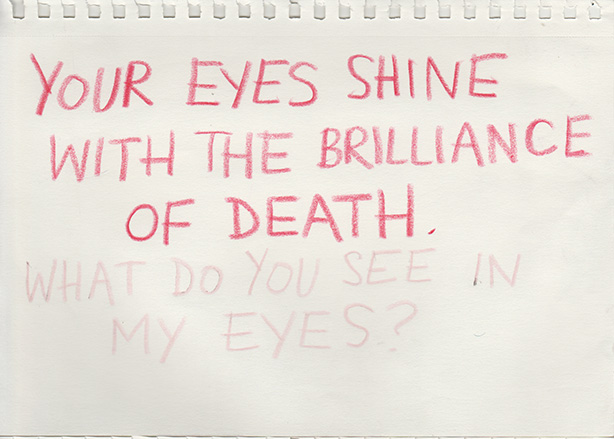 YOUR EYES SHINE
WITH THE BRILLIANCE
OF DEATH.
WHAT DO YOU SEE IN
MY EYES?